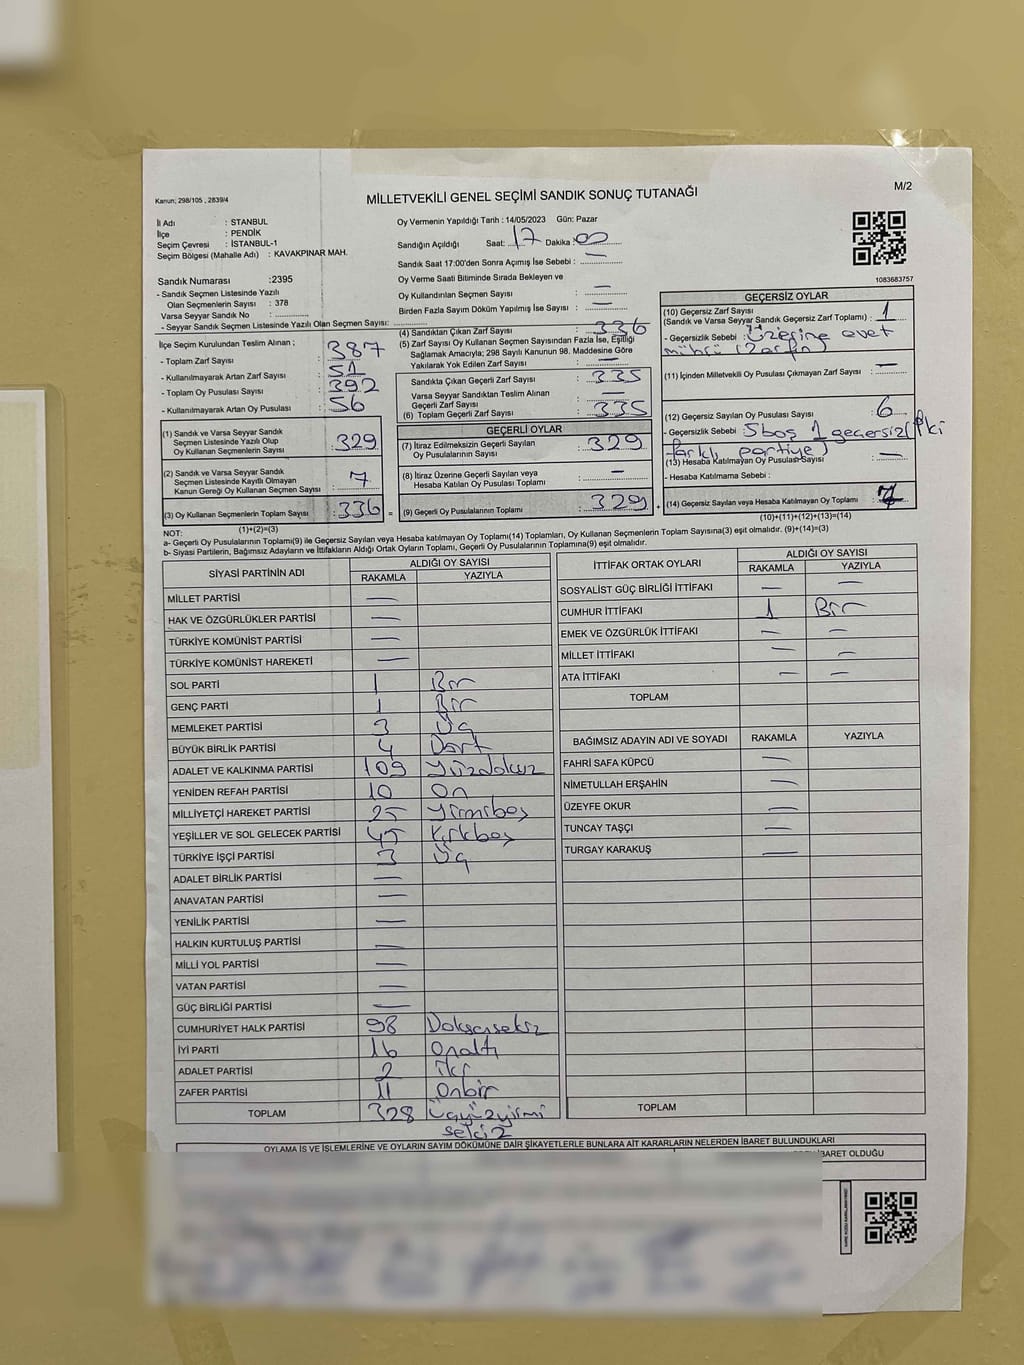 Kanun; 298/105 , 2839/4
MİLLETVEKİLİ GENEL SEÇİMİ SANDIK SONUÇ TUTANAĞI
M/2
İl Adı : STANBUL
İlçe : PENDİK
Seçim Çevresi : İSTANBUL-1
Seçim Bölgesi (Mahalle Adı) : KAVAKPINAR MAH.
Oy Vermenin Yapıldığı Tarih : 14/05/2023 Gün: Pazar
Sandığın Açıldığı Saat: 17 Dakika : 00
Sandık Saat 17:00'den Sonra Açımış İse Sebebi : —
Oy Verme Saati Bitiminde Sırada Bekleyen ve
Oy Kullandırılan Seçmen Sayısı : —
Birden Fazla Sayım Döküm Yapılmış İse Sayısı : —
1083683757
Sandık Numarası :2395
- Sandık Seçmen Listesinde Yazılı
Olan Seçmenlerin Sayısı : 378
Varsa Seyyar Sandık No :
- Seyyar Sandık Seçmen Listesinde Yazılı Olan Seçmen Sayısı:
İlçe Seçim Kurulundan Teslim Alınan ;
- Toplam Zarf Sayısı : 387
- Kullanılmayarak Artan Zarf Sayısı : 51
- Toplam Oy Pusulası Sayısı : 392
- Kullanılmayarak Artan Oy Pusulası : 56
(1) Sandık ve Varsa Seyyar Sandık
Seçmen Listesinde Yazılı Olup
Oy Kullanan Seçmenlerin Sayısı : 329
(2) Sandık ve Varsa Seyyar Sandık
Seçmen Listesinde Kayıtlı Olmayan
Kanun Gereği Oy Kullanan Seçmen Sayısı : 7
(3) Oy Kullanan Seçmenlerin Toplam Sayısı : 336 =
(1)+(2)=(3)
(4) Sandıktan Çıkan Zarf Sayısı : 336
(5) Zarf Sayısı Oy Kullanan Seçmen Sayısından Fazla İse, Eşitliği
Sağlamak Amacıyla; 298 Sayılı Kanunun 98. Maddesine Göre
Yakılarak Yok Edilen Zarf Sayısı : —
Sandıkta Çıkan Geçerli Zarf Sayısı : 335
Varsa Seyyar Sandıktan Teslim Alınan
Geçerli Zarf Sayısı : —
(6) Toplam Geçerli Zarf Sayısı : 335
GEÇERLİ OYLAR
(7) İtiraz Edilmeksizin Geçerli Sayılan
Oy Pusulalarının Sayısı : 329
(8) İtiraz Üzerine Geçerli Sayılan veya
Hesaba Katılan Oy Pusulası Toplamı : —
(9) Geçerli Oy Pusulalarının Toplamı : 329 +
GEÇERSİZ OYLAR
(10) Geçersiz Zarf Sayısı
(Sandık ve Varsa Seyyar Sandık Geçersiz Zarf Toplamı) : 1
- Geçersizlik Sebebi : Üzerine evet
mührü (zarfın)
(11) İçinden Milletvekili Oy Pusulası Çıkmayan Zarf Sayısı : —
(12) Geçersiz Sayılan Oy Pusulası Sayısı : 6
- Geçersizlik Sebebi : 5 boş 1 geçersiz (İki
farklı partiye)
(13) Hesaba Katılmayan Oy Pusulası Sayısı : —
- Hesaba Katılmama Sebebi :
(14) Geçersiz Sayılan veya Hesaba Katılmayan Oy Toplamı : 7
(10)+(11)+(12)+(13)=(14)
NOT:
a- Geçerli Oy Pusulalarının Toplamı(9) ile Geçersiz Sayılan veya Hesaba katılmayan Oy Toplamı(14) Toplamları, Oy Kullanan Seçmenlerin Toplam Sayısına(3) eşit olmalıdır. (9)+(14)=(3)
b- Siyasi Partilerin, Bağımsız Adayların ve İttifakların Aldığı Ortak Oyların Toplamı, Geçerli Oy Pusulalarının Toplamına(9) eşit olmalıdır.
SİYASİ PARTİNİN ADI ALDIĞI OY SAYISI
RAKAMLA YAZIYLA
MİLLET PARTİSİ —
HAK VE ÖZGÜRLÜKLER PARTİSİ —
TÜRKİYE KOMÜNİST PARTİSİ —
TÜRKİYE KOMÜNİST HAREKETİ —
SOL PARTİ 1 Bir
GENÇ PARTİ 1 Bir
MEMLEKET PARTİSİ 3 Üç
BÜYÜK BİRLİK PARTİSİ 4 Dört
ADALET VE KALKINMA PARTİSİ 109 Yüzdokuz
YENİDEN REFAH PARTİSİ 10 On
MİLLİYETÇİ HAREKET PARTİSİ 25 Yirmibeş
YEŞİLLER VE SOL GELECEK PARTİSİ 45 Kırkbeş
TÜRKİYE İŞÇİ PARTİSİ 3 Üç
ADALET BİRLİK PARTİSİ —
ANAVATAN PARTİSİ —
YENİLİK PARTİSİ —
HALKIN KURTULUŞ PARTİSİ —
MİLLİ YOL PARTİSİ —
VATAN PARTİSİ —
GÜÇ BİRLİĞİ PARTİSİ —
CUMHURİYET HALK PARTİSİ 98 Doksansekiz
İYİ PARTİ 16 Onaltı
ADALET PARTİSİ 2 İki
ZAFER PARTİSİ 11 Onbir
TOPLAM 328 Üçyüzyirmi
sekiz
İTTİFAK ORTAK OYLARI ALDIĞI OY SAYISI
RAKAMLA YAZIYLA
SOSYALİST GÜÇ BİRLİĞİ İTTİFAKI — —
CUMHUR İTTİFAKI 1 Bir
EMEK VE ÖZGÜRLÜK İTTİFAKI — —
MİLLET İTTİFAKI — —
ATA İTTİFAKI — —
TOPLAM
BAĞIMSIZ ADAYIN ADI VE SOYADI RAKAMLA YAZIYLA
FAHRİ SAFA KÜPCÜ —
NİMETULLAH ERŞAHİN —
ÜZEYFE OKUR —
TUNCAY TAŞÇI —
TURGAY KARAKUŞ —
TOPLAM
OYLAMA İŞ VE İŞLEMLERİNE VE OYLARIN SAYIM DÖKÜMÜNE DAİR ŞİKAYETLERLE BUNLARA AİT KARARLARIN NELERDEN İBARET BULUNDUKLARI
İBARET OLDUĞU